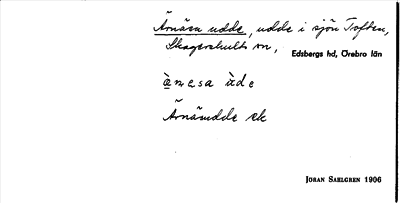 Ärnäsa udde, udde i sjön Toften,
Skagershults sn, Edsbergs hd, Örebro län
æ̀mesa ùde
Ärnäsudde ek
JÖRAN SAHLGREN 1906